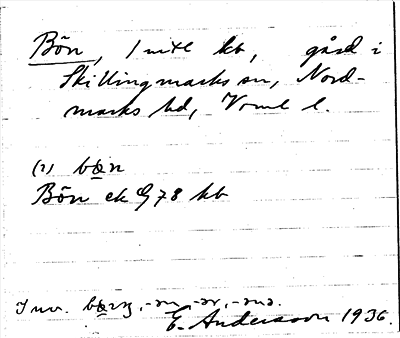 Bön, 1 mtl kb, gård i
Skillingmarks sn, Nord-
marks hd, Vrml l.
(1) bœ̱n
Bön ek G 78 kb
Inv.
E. Andersson 1936.